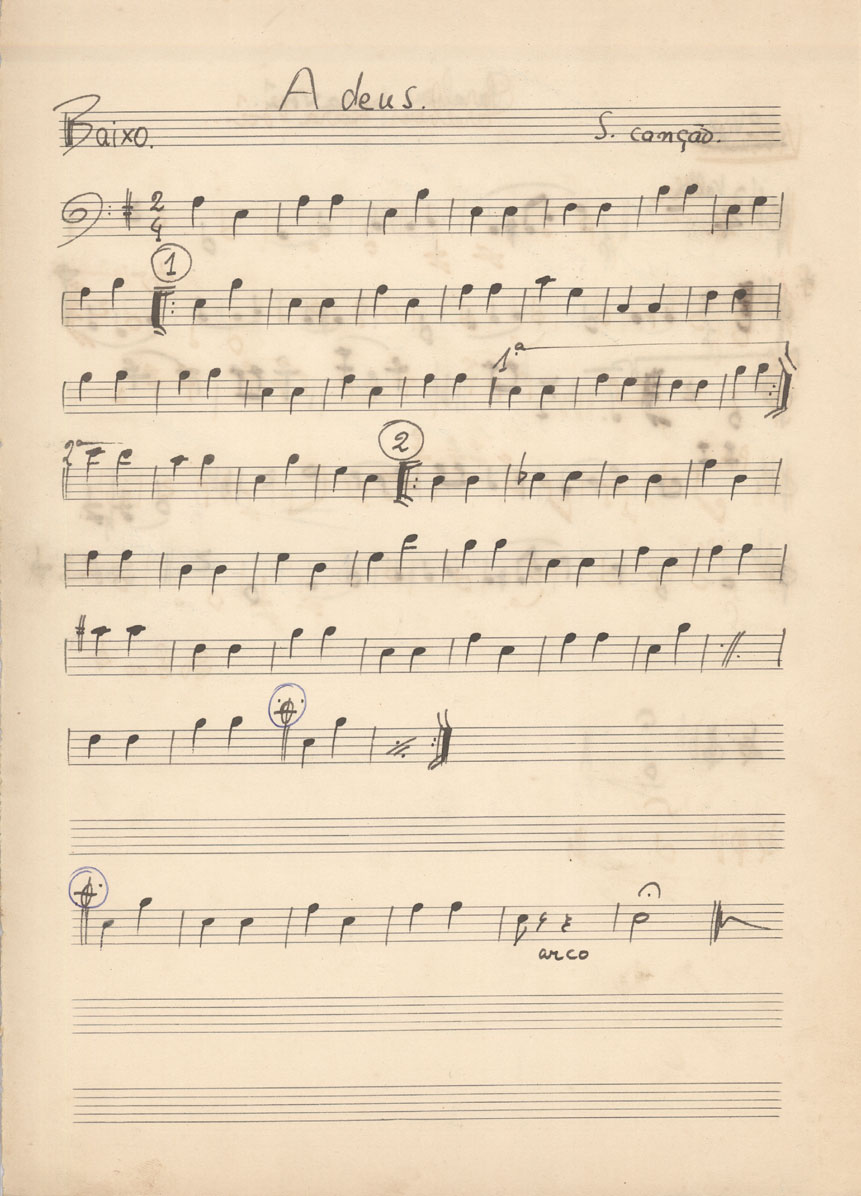 Adeus.
Baixo. S. canção.
2
4
1
1ª
2ª 2
arco